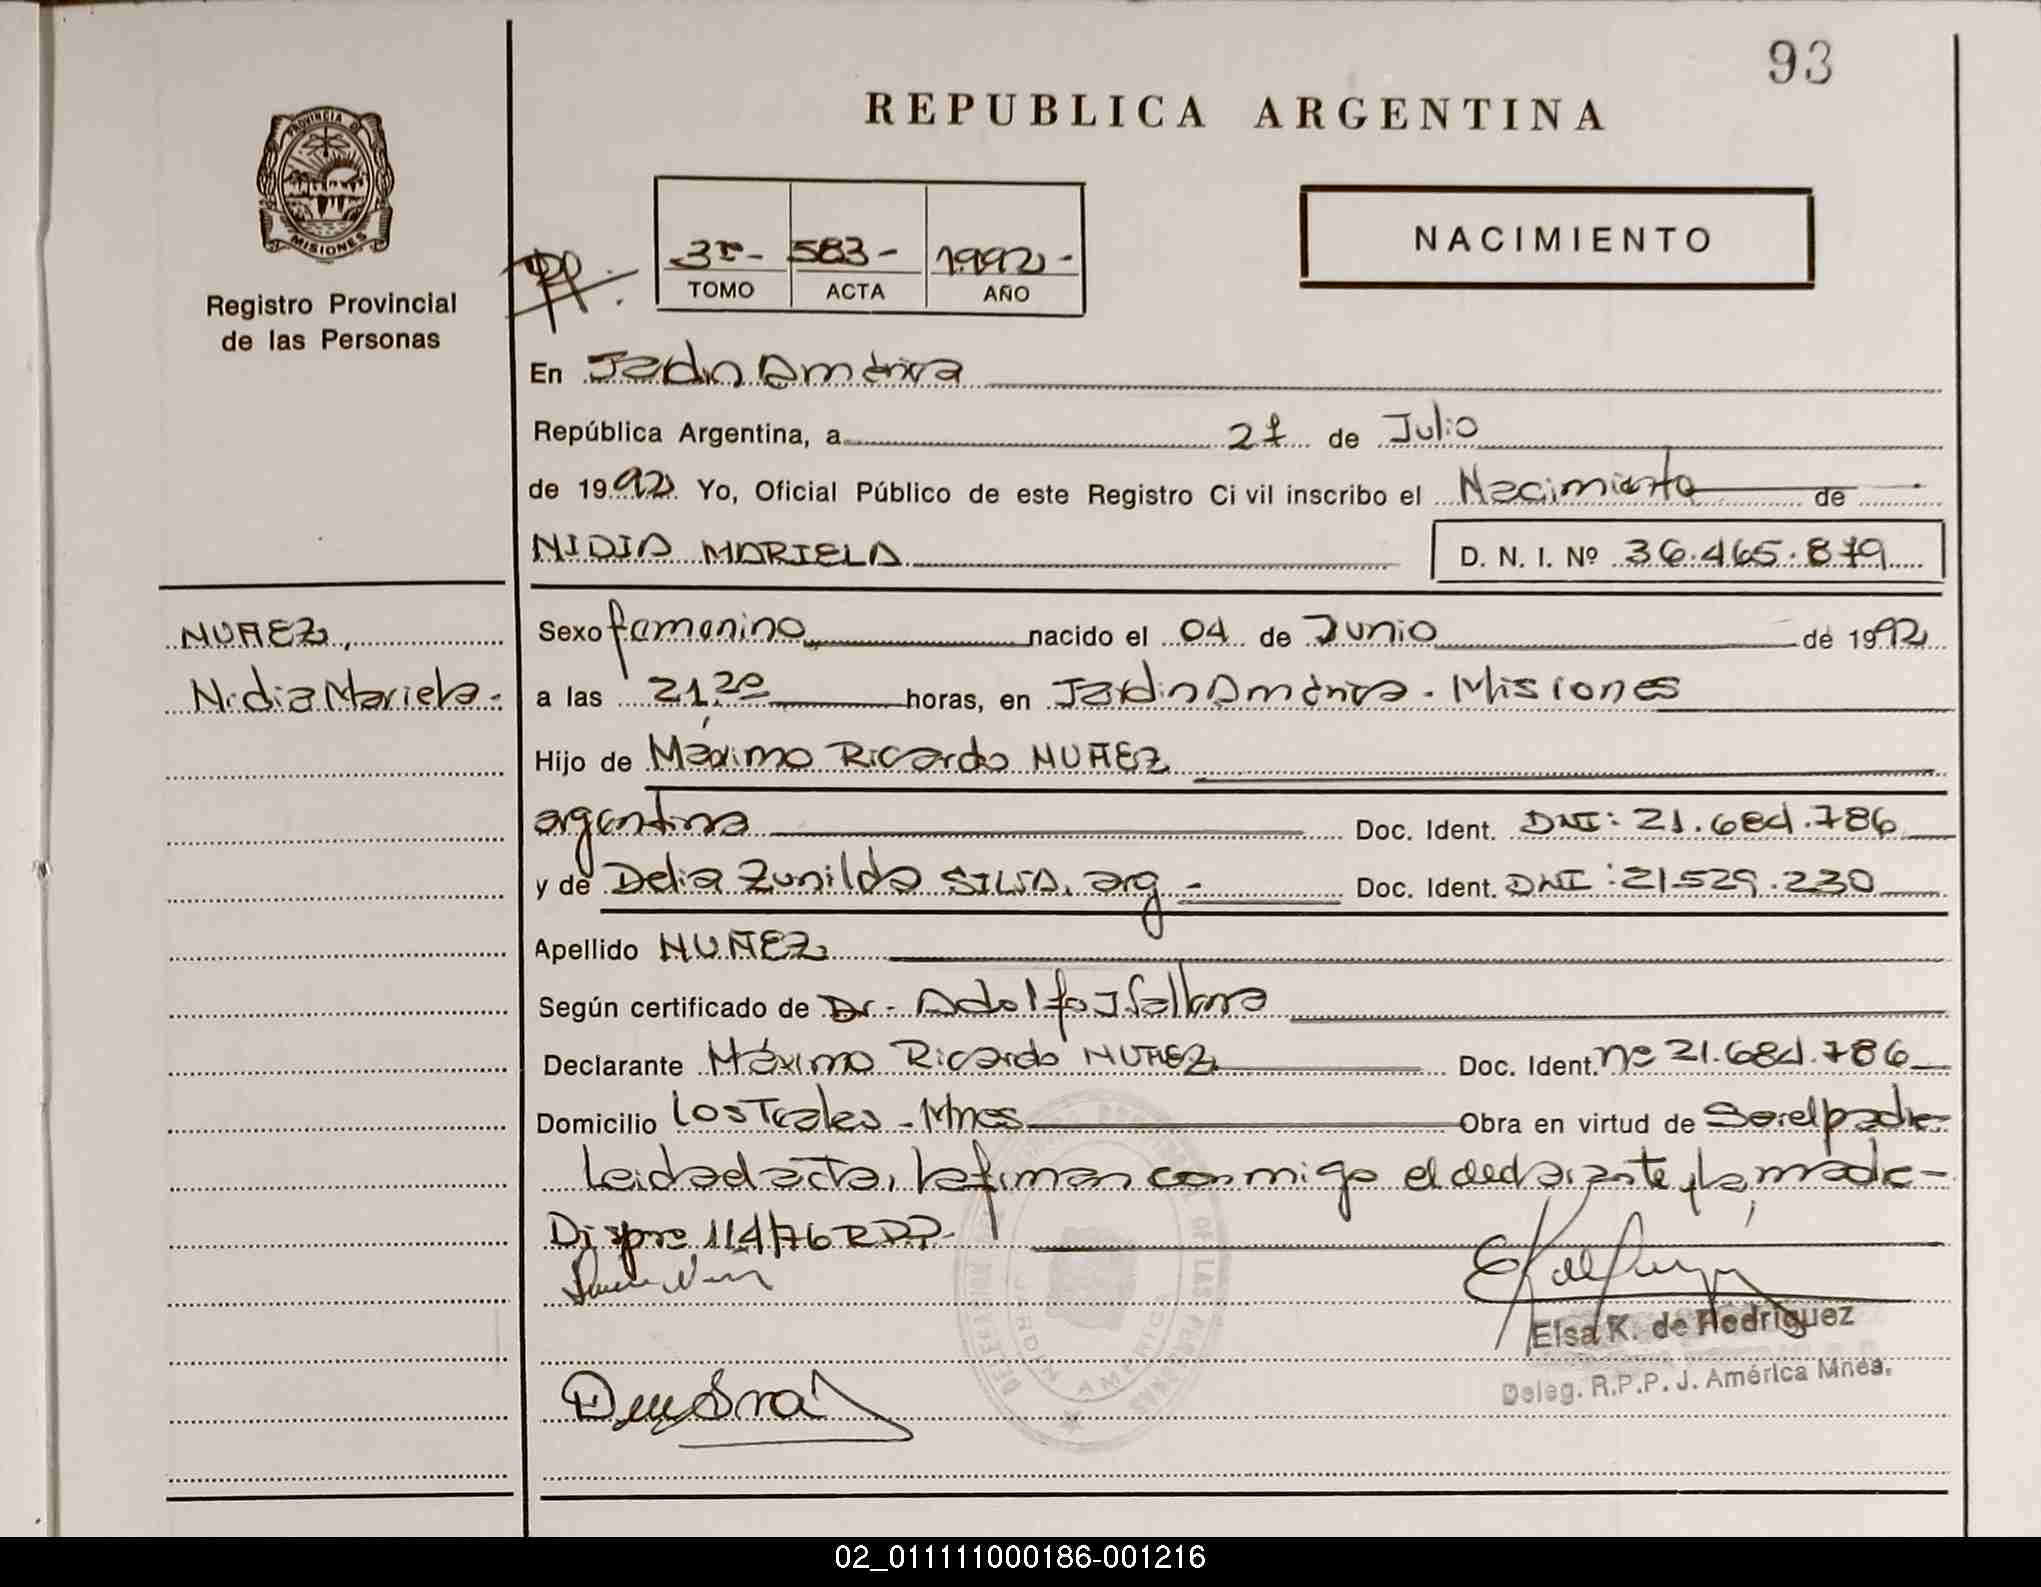 93
REPUBLICA ARGENTINA
PROVINCIA DE
MISIONES
Registro Provincial
de las Personas
3º- 583- 1992-
TOMO ACTA AÑO
NACIMIENTO
En Jardín América
República Argentina, a 27 de Julio
de 1992 Yo, Oficial Público de este Registro Ci vil inscribo el Nacimiento de
NIDIA MARIELA D. N. I. Nº 36.465.879
NUÑEZ,
Nidia Mariela-
Sexo femenino nacido el 04 de Junio de 1992
a las 21,20 horas, en Jardín América - Misiones
Hijo de Máximo Ricardo NUÑEZ
argentina Doc. Ident. DNI: 21.684.786
y de Delia Zunilda SILVA. arg - Doc. Ident. DNI: 21.529.230
Apellido NUÑEZ
Según certificado de Dr. Adolfo
Declarante Máximo Ricardo NUÑEZ Doc. Ident. nº 21.684.786
Domicilio Los Teales - Mnes Obra en virtud de Ser el padre-
Leída el acta, la firman conmigo el declarante y la madre-
114/76 RPP-
Elsa K. de Rodriguez
Deleg. R.P.P. J. América Mnes.
JARDIN AMERICA
02_011111000186-001216